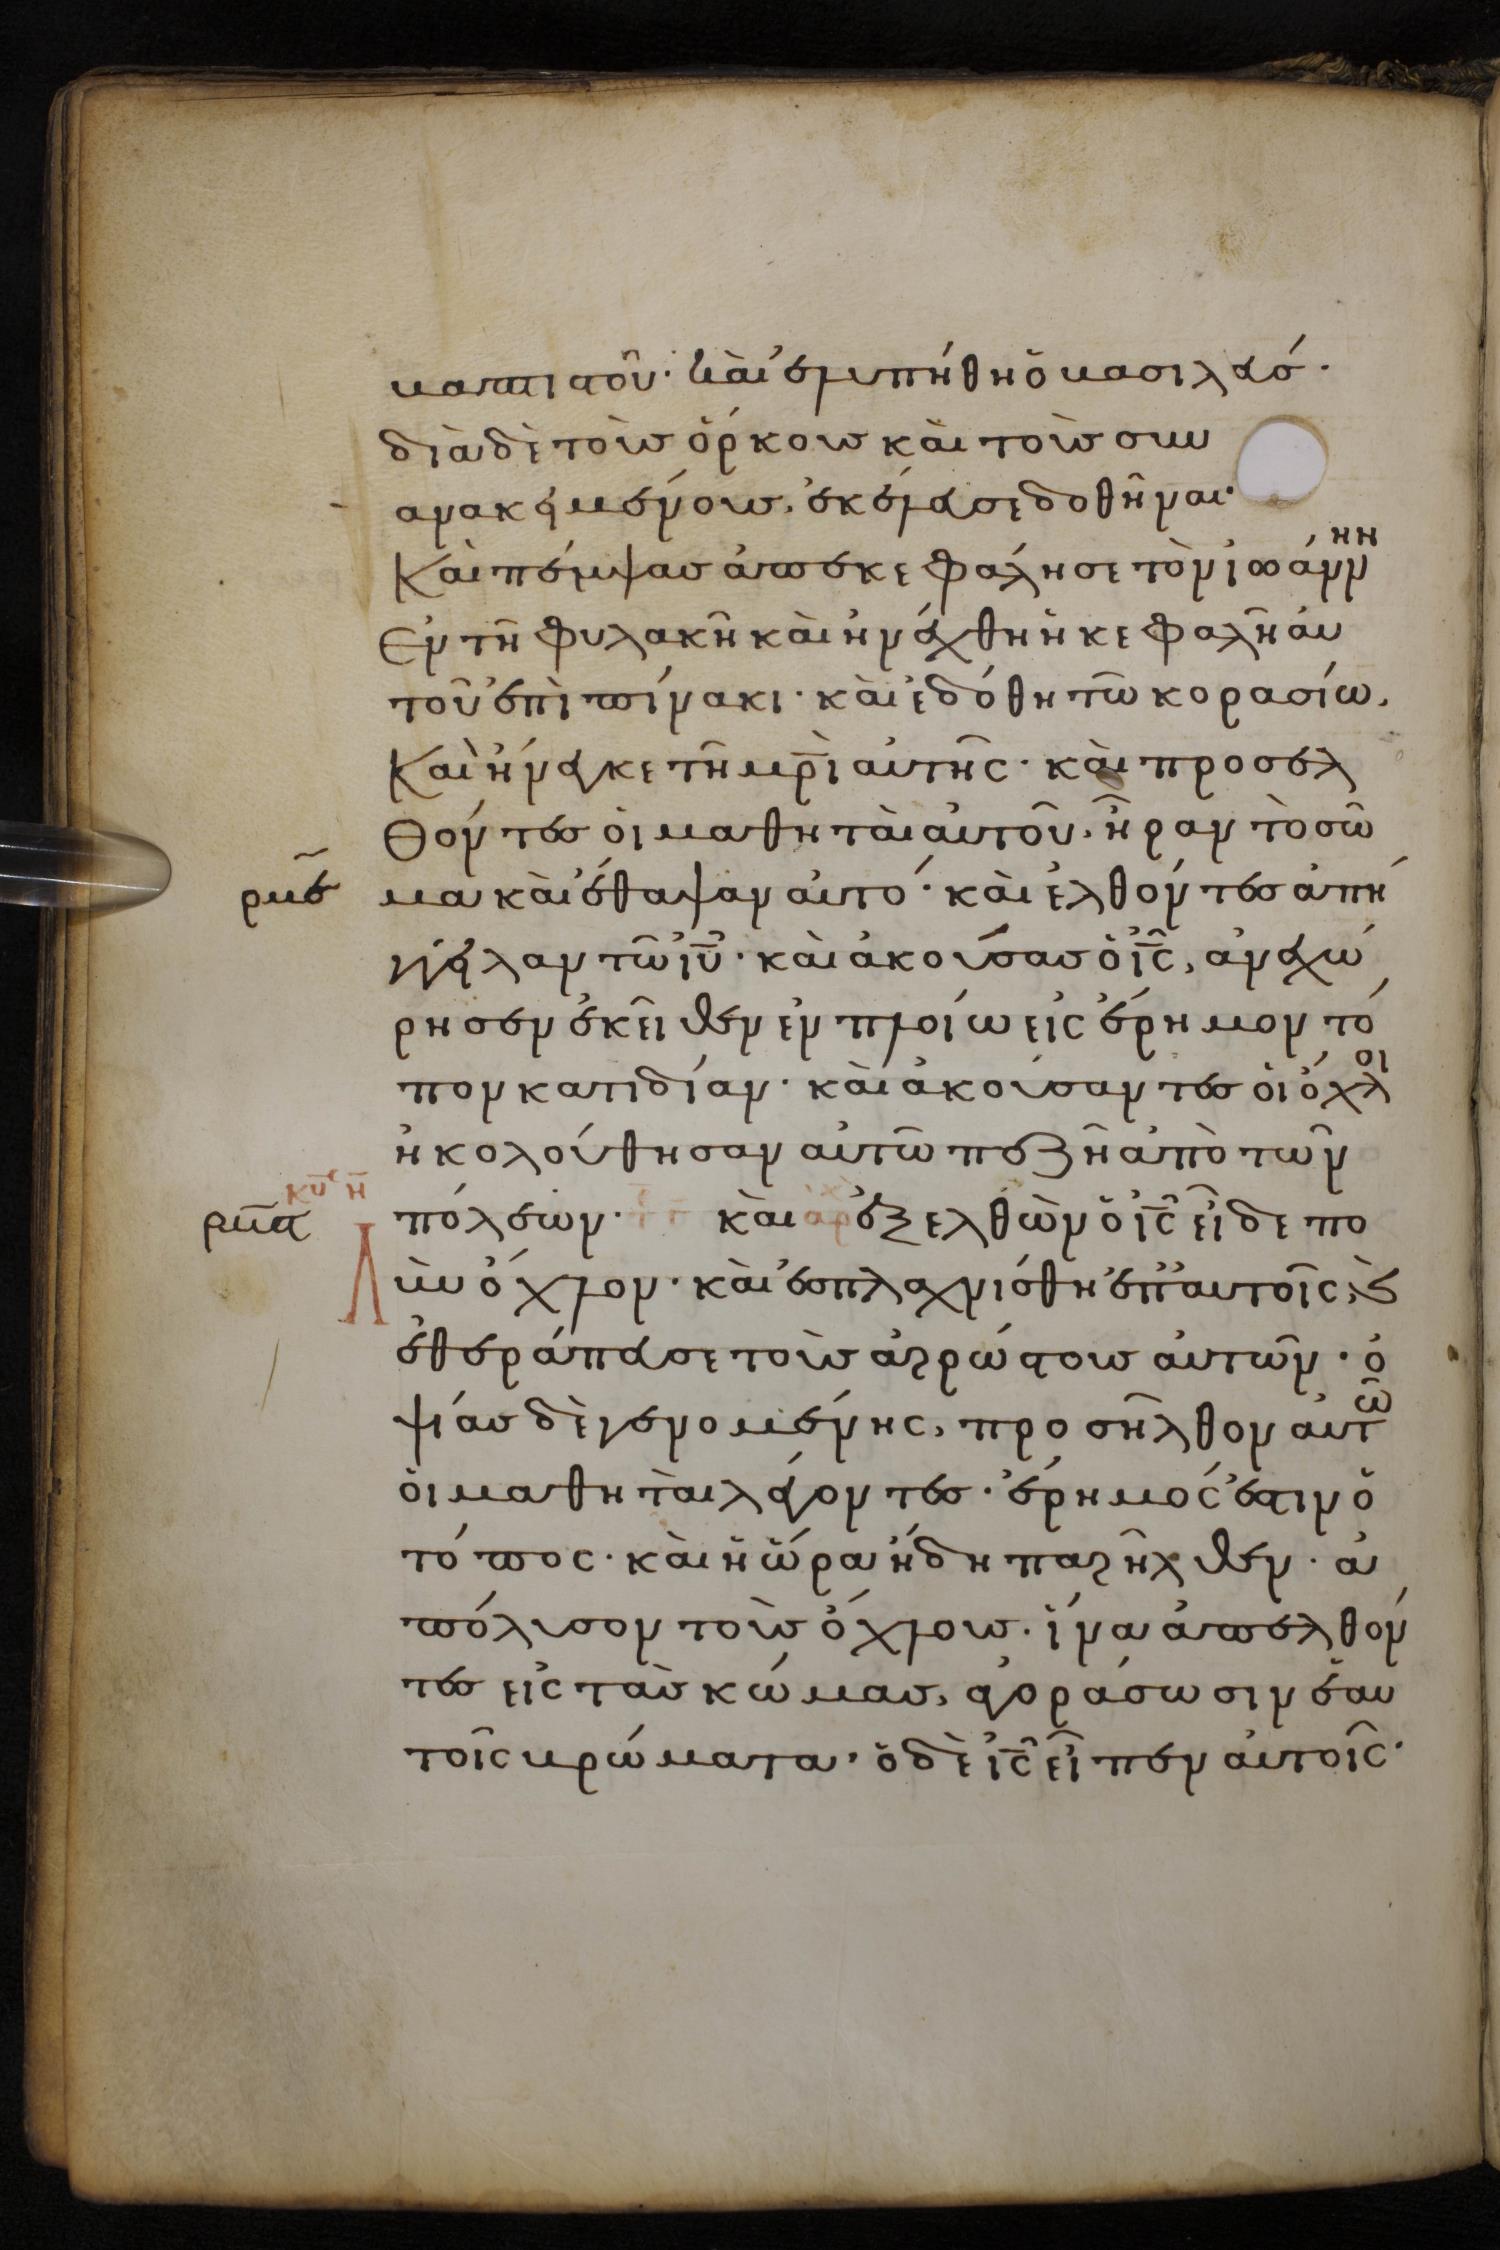 βαπτιστοῦ· καὶ ἐλυπήθη ὁ βασιλεύσ·
διὰ δὲ τοὺσ ὅρκουσ καὶ τοὺσ συν
ανακειμένουσ, ἐκέλευσε δοθῆναι·
Καὶ πέμψασ ἀπεκεφάλησε τὸν ἰωάννην
Ἐν τῆ φυλακῆ καὶ ἠνέχθη ἡ κεφαλῆ αὐ
τοῦ ἐπὶ πίνακι· καὶ ἐδόθη τῶ κορασίω,
Καὶ ἤνεγκε τῆ μρ̅ὶ αὐτῆς· καὶ προσελ
θόντεσ οἱ μαθηταὶ αὐτοῦ, ἦραν τὸ σῶ
ρμε μα καὶ ἔθαψαν αὐτό· καὶ ἐλθόντεσ ἀπή
γγειλαν τῶ ἰυ̅· καὶ ἀκούσασ ὁ ἰς̅, ἀνεχώ
ρησεν ἐκεῖθεν ἐν πλοίω εἰς ἔρημον τό
πον κατιδίαν· καὶ ἀκούσαντεσ οἱ ὄχλοι
ἠκολούθησαν αὐτῶ πεζῆ ἀπὸ τῶν
κυ η
ρμϛ πόλεων· καὶ ἀρχ ἐξελθὼν ὁ ἰς̅ εἶδε πο
λὺν ὄχλον· καὶ ἐσπλαχνίσθη ἐπ' αυτοῖς, καὶ
ἐθεράπευσε τοὺσ ἀρρώστουσ αὐτῶν· ὀ
ψίασ δὲ γενομένης, προσῆλθον αὐτῶ
οἱ μαθηταὶ λέγοντεσ· ἔρημός ἐστιν ὁ
τόπος· καὶ ἡ ὥρα ἤδη παρῆλθεν· ἀ
πόλυσον τοὺσ ὄχλουσ· ἵνα ἀπελθόν
τεσ εἰς τὰσ κώμασ, ἀγοράσωσιν ἑαυ
τοῖς βρώματα· ὁ δὲ ἰς̅ εἶπεν αὐτοῖς·